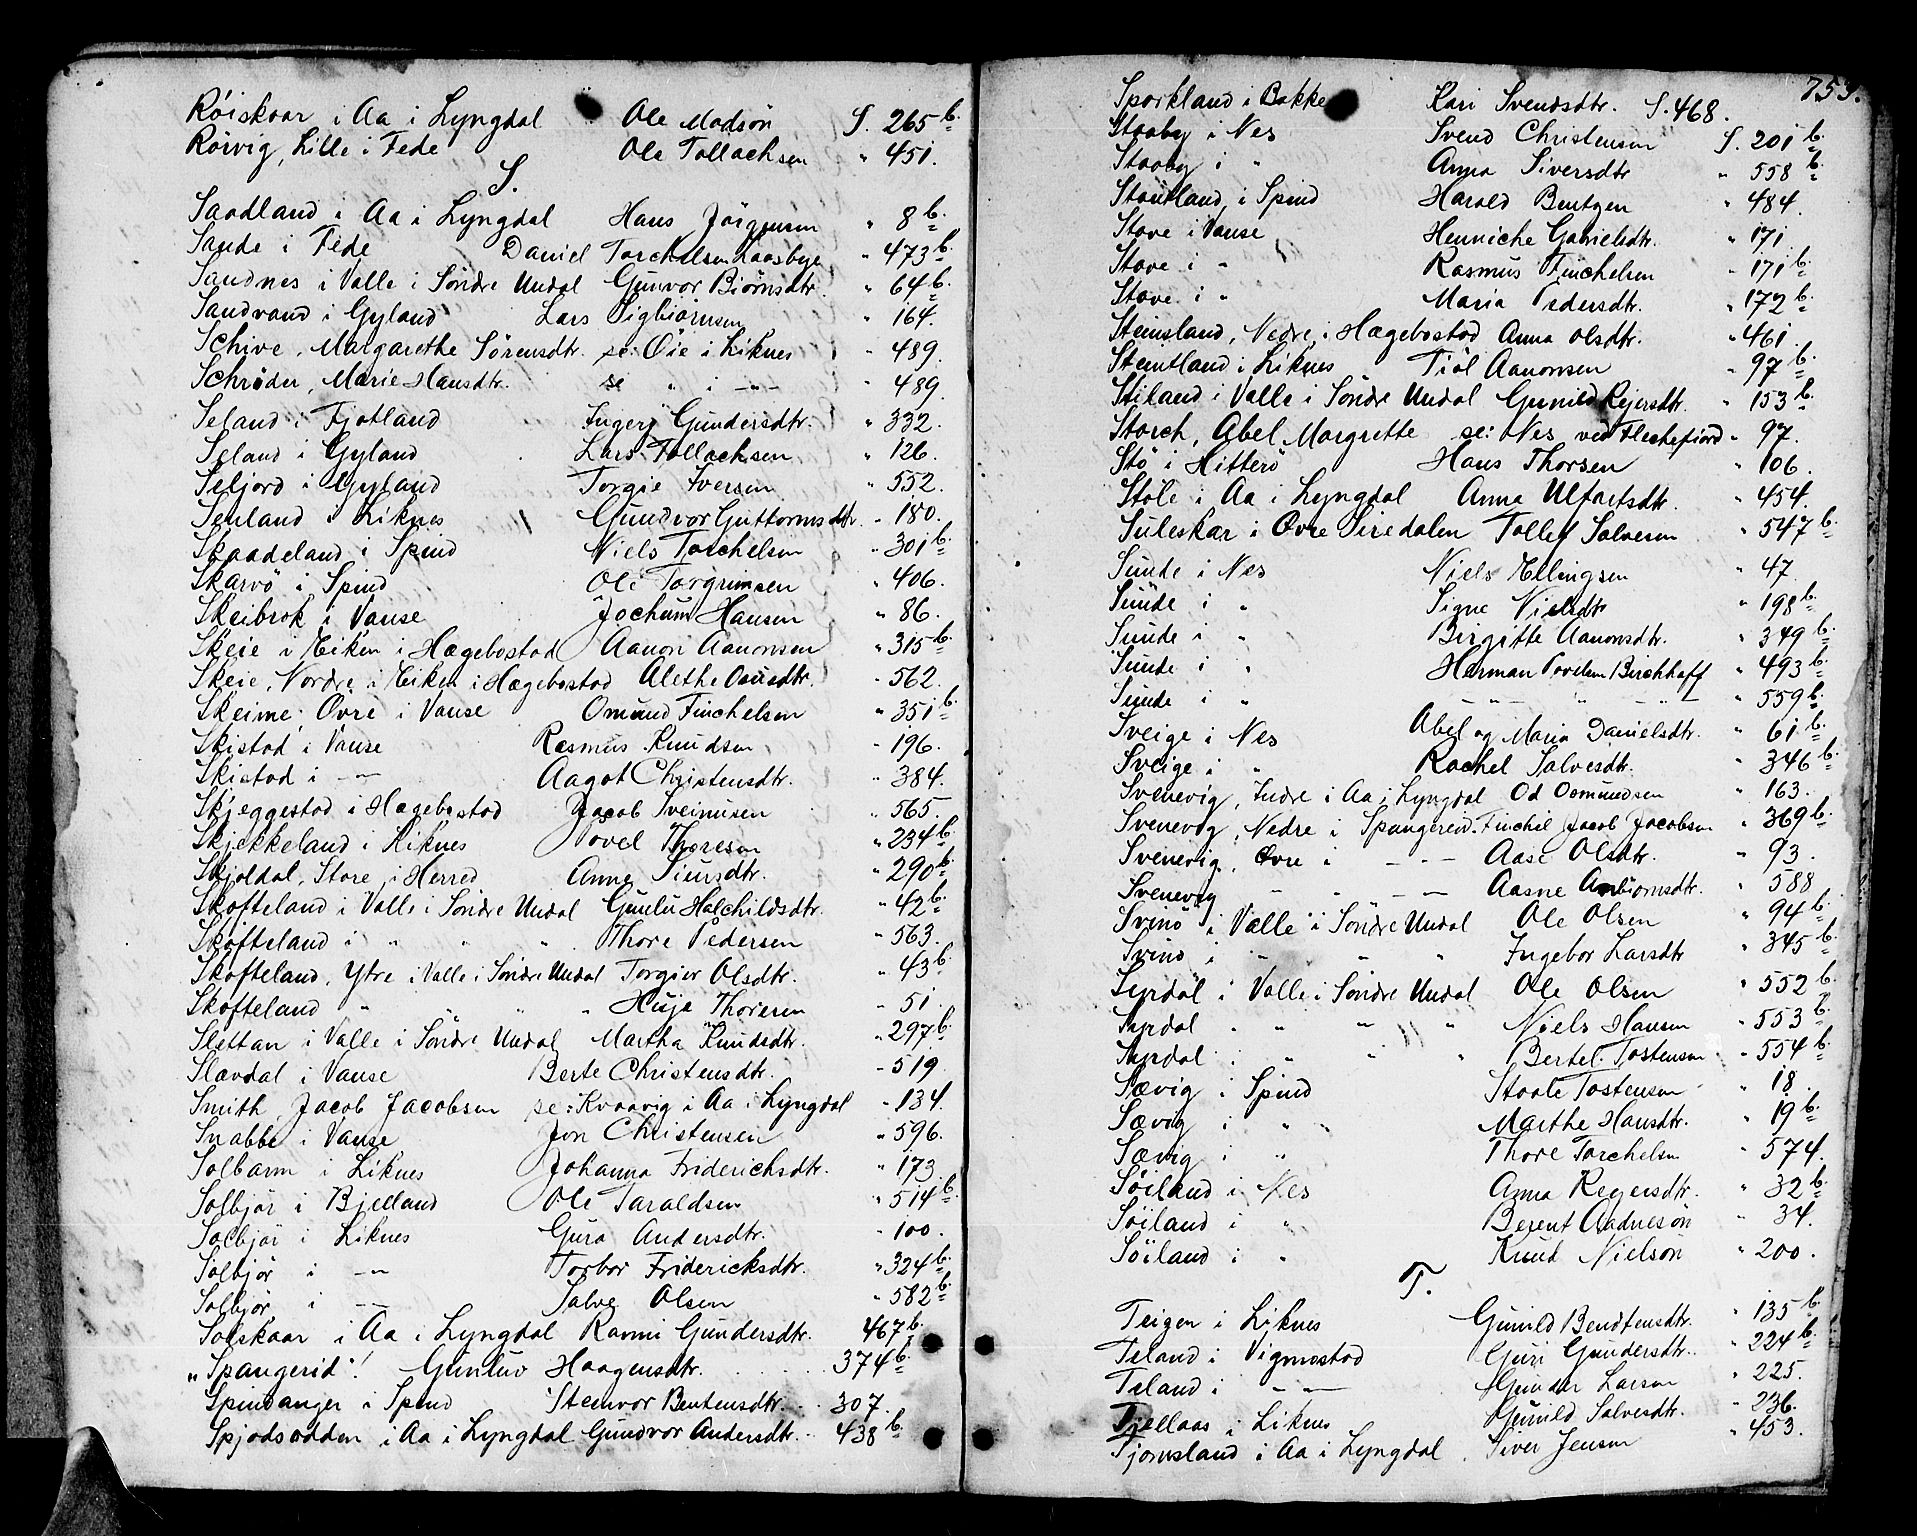 Röiskaar i Aa i Lyngdal Ole Madsön S. 265 b.
Rörvig, Lille i Fede Ole Tollachsen " 451.
S.
Saadland i Aa i Lyngdal Hans Jörgensen " 8 b.
Sande i Fede Daniel Torchelsen Laasbye " 473 b.
Sandnes i Valle i Söndre Undal Gunvor Biörnsdtr. " 64 b.
Sandvand i Gyland Lars Sigbiörnsen " 164.
Schive, Margarethe Sörensdtr. se: Öie i Liknes " 489.
Schrøder, Marie Hansdtr. se " i -"- " 489.
Seland i Fjotland Ingerj Gundersdtr. " 332.
Seland i Gyland Lars Tollachsen " 126.
Seljord i Gyland Torgie Iversen " 552.
Senland i Liknes Gundvor Guttormsdtr. " 180.
Skaadeland i Spind Niels Torchelsen " 301 b.
Skarvö i Spind Ole Torgrimsen " 406.
Skeibrok i Vanse Jochum Hansen " 86.
Skeie i Eiken i Hægebostad Aanon Aanonsen " 315 b.
Skeie, Nordre i Eiken i Hægebostad Alethe Osuldtr. " 562.
Skeime, Övre i Vanse Omund Finchelsen " 351 b.
Skistad i Vanse Rasmus Knudsen " 196.
Skistad i -"- Aagot Christensdtr. " 384.
Skjeggestad i Hægebostad Jacob Sveinusen " 565.
Skjekkeland i Liknes Povel Thoresen " 234 b.
Skjoldal, Store i Herred Anne Siursdtr. " 290 b.
Skofteland i Valle i Söndre Undal Gunlu Halchildsdtr. " 42 b.
Skofteland i " " " Thore Pedersen " 563.
Skofteland, Ytre i Valle i Söndre Undal Torgier Olsdtr. " 43 b.
Skofteland " " " Huje Thoresen " 51.
Slettan i Valle i Söndre Undal Martha Knudsdtr. " 297 b.
Slævdal i Vanse Berte Christensdtr. " 519.
Smith, Jacob Jacobsen se: Kvaavig i Aa i Lyngdal " 134.
Snabbe i Vanse Jon Christensen " 596.
Solbarm i Liknes Johanna Friderichsdtr. " 173.
Solbjör i Bjelland Ole Taraldsen " 514 b.
Solbjör i Liknes Guro Andersdtr. " 100.
Solbjör i -"- Torbor Fridericksdtr. " 324 b.
Solbjör i -"- Salve Olsen " 582 b.
Solskaar i Aa i Lyngdal Ranni Gundersdtr. 467 b.
"Spangerid"! Gunluv Haagensdtr. 374 b.
Spindanger i Spind Steenvor Bentensdtr. 307.
Spjodsodden i Aa i Lyngdal Gundvor Andersdtr. 438 b.
753.
Sporkland i Bakke Kari Svendsdtr. S. 468.
Staaby i Nes Svend Christensen S. 201 b.
Staaby i " Anna Siversdtr " 558 b.
Stautland i Spind Harald Bentzen " 484.
Stave i Vanse Henniche Gabrielsdtr. " 171
Stave i " Rasmus Finchelsen " 171 b.
Stave i " Maria Pedersdtr. " 172 b.
Steinsland, Nedre i Hægebostad Anna Olsdtr. " 461.
Stemtland i Liknes Tiöl Aanonsen " 97 b.
Stiland i Valle i Söndre Undal Gunild Rejersdtr. " 153 b.
Storch, Abel Margrette se: Nes ved Flechefiord " 97.
Stö i Hitterö Hans Thorsen " 106.
Støle i Aa i Lyngdal Anna Ulfartsdtr. " 454.
Suleskar i Øvre Siredalen Tollef Salvesen " 547 b.
Sunde i Nes Niels Ellingsen " 47
Sunde i " Signe Nielsdtr " 198 b.
Sunde i " Birgitte Aanonsdtr. " 349 b.
Sunde i " Herman Povelsen Berchhoff " 493 b.
Sunde i " - " - " - " - " 559 b.
Sveige i Nes Abel og Maria Danielsdtr. " 61 b.
Sveige i " Rachel Salvesdtr. " 346 b.
Svenevig, Indre i Aa i Lyngdal Od Osmundsen " 163.
Svenevig, Nedre i Spangereid Finchel Jacob Jacobsen " 369 b.
Svenevig, Øvre i - - - Aase Olsdtr. " 93.
Svenevig - - - - Aasne Anbiornsdtr. " 588
Svinö i Valle i Söndre Undal Ole Olsen " 94 b.
Svinö i " " " Ingebor Larsdtr " 345 b.
Syrdal i Valle i Söndre Undal Ole Olsen " 552 b.
Syrdal " " " " Niels Hansen " 553 b.
Syrdal " " " " Bertel Tostensen " 554 b.
Sævig i Spind Staale Tostensen " 18.
Sævig i " " Marthe Hansdtr. " 19 b.
Sævig i " Thore Torchelsen " 574.
Söiland i Nes Anna Regersdtr. " 32 b.
Söiland i " Berent Aadnesön " 34.
Söiland i " Knud Nielsön " 200.
T.
Teigen i Liknes Gunild Bendtensdtr. " 135 b.
Teland i Vigmostad Guri Gundersdtr. " 224 b.
Teland i - - Gunder Larsen " 225.
Tjellaas i Liknes Gunild Salvesdtr. " 236.
Tjomsland i Aa i Lyngdal Siver Jensen " 453.